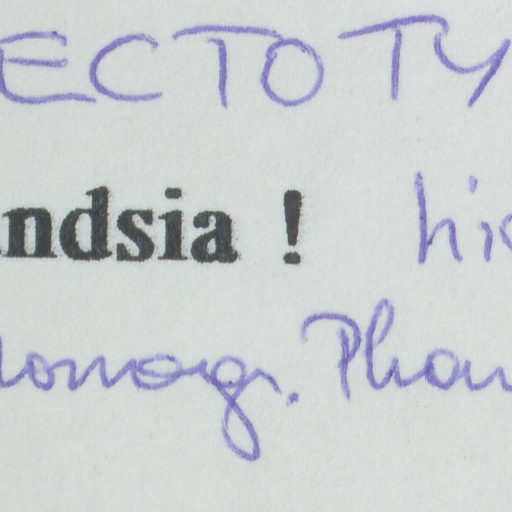 ECTOTY
andsia ! hi
onogr. Phan